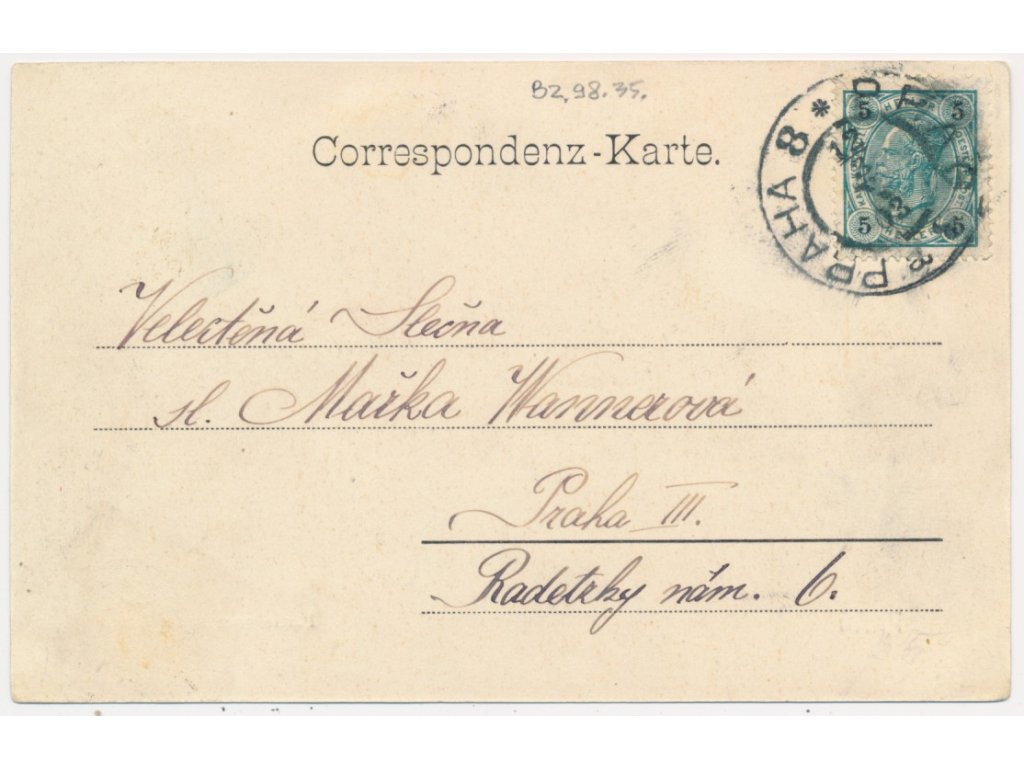 BZ 98.35.
Correspondenz-Karte.
PRAHA 8 * PRAG
5 5
5 5
Velectěná Slečna
sl. Mařka Wannerová
Praha III.
Radetzky nám. 6.